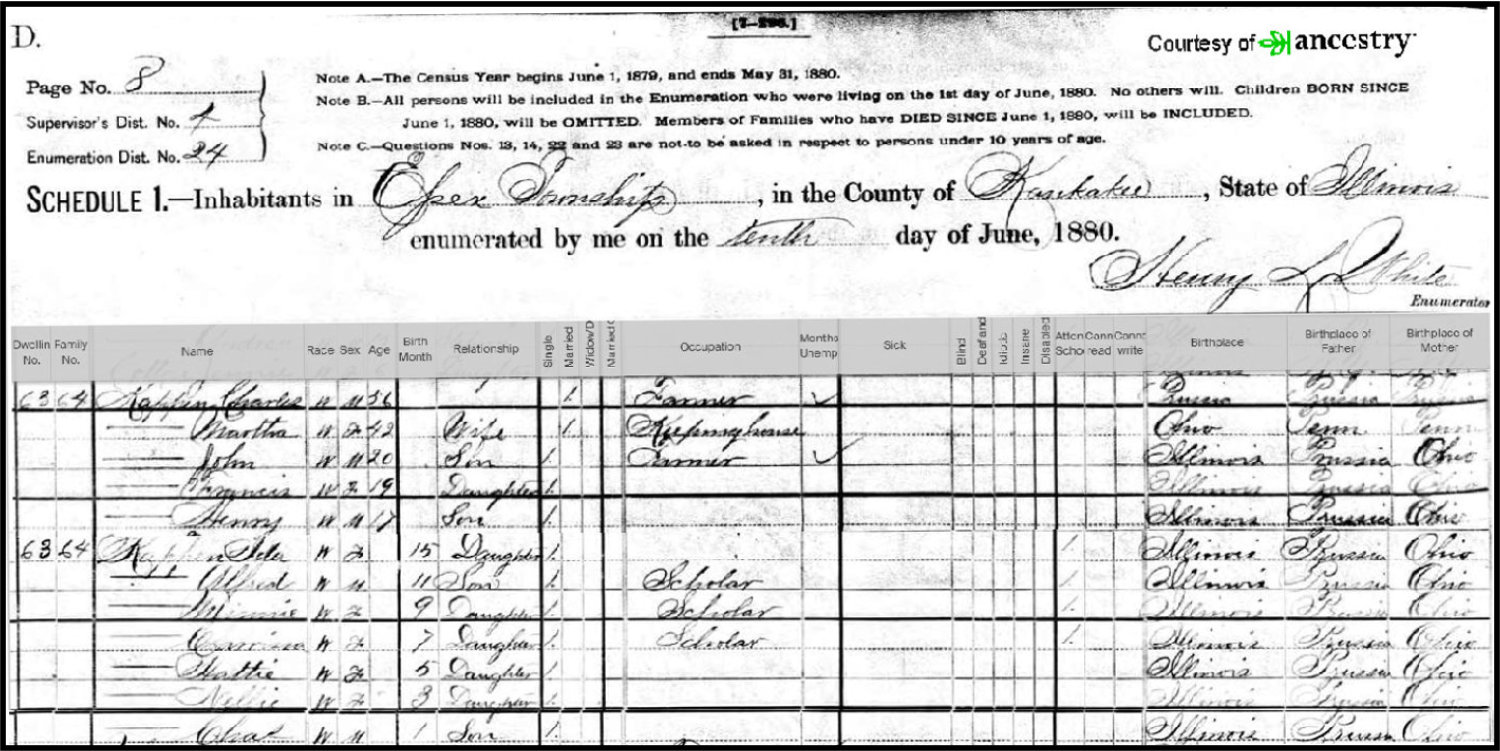 [7-296.]
D.
Courtesy of ancestry
Page No. 8
Supervisor's Dist. No. 4
Enumeration Dist. No. 24
Note A.—The Census Year begins June 1, 1879, and ends May 31, 1880.
Note B.—All persons will be included in the Enumeration who were living on the 1st day of June, 1880. No others will. Children BORN SINCE
June 1, 1880, will be OMITTED. Members of Families who have DIED SINCE June 1, 1880, will be INCLUDED.
Note C.—Questions Nos. 13, 14, 22 and 23 are not to be asked in respect to persons under 10 years of age.
SCHEDULE 1.—Inhabitants in Essex Township, in the County of Kankakee, State of Illinois
enumerated by me on the tenth day of June, 1880.
Henry L White
Enumerator
Dwellin No. Family No. Name Race Sex Age Birth Month Relationship Single Married Widow/D Married C Occupation Months Unemp Sick Blind Deaf and Idiotic Insane Disabled Atten Schol Cann read Canno write Birthplace Birthplace of Father Birthplace of Mother
63 64 Charles W M 56 1 Farmer Prussia Prussia Prussia
Martha W F 42 Wife 1 Keeping house Ohio Penn Penn
John W M 20 Son 1 Farmer Illinois Prussia Ohio
Francis W F 19 Daughter 1 Illinois Prussia Ohio
Henry W M 17 Son 1 Illinois Prussia Ohio
63 64 Kappen Ida W F 15 Daughter 1 1 Illinois Prussia Ohio
Alfred W M 11 Son 1 Scholar 1 Illinois Prussia Ohio
Minnie W F 9 Daughter 1 Scholar 1 Illinois Prussia Ohio
W F 7 Daughter 1 Scholar 1 Illinois Prussia Ohio
Hattie W F 5 Daughter 1 Illinois Prussia Ohio
Nellie W F 3 Daughter 1 Illinois Prussia Ohio
Chas W M 1 Son 1 Illinois Prussia Ohio